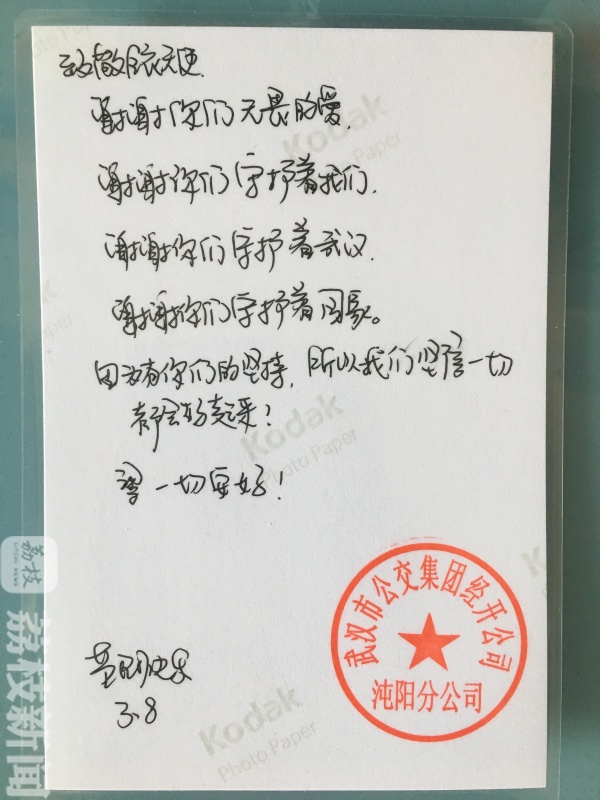 致敬白衣天使
谢谢你们无畏的爱.
谢谢你们守护着我们.
谢谢你们守护着武汉.
谢谢你们守护着国家。
因为有你们的坚持,所以我们坚信一切
都会好起来!
一切安好!
快乐
3.8
武汉市公交集团经开公司
沌阳分公司
Kodak
Photo Paper
Kodak
Photo Paper
Kodak
Photo Paper
荔枝
荔枝新闻